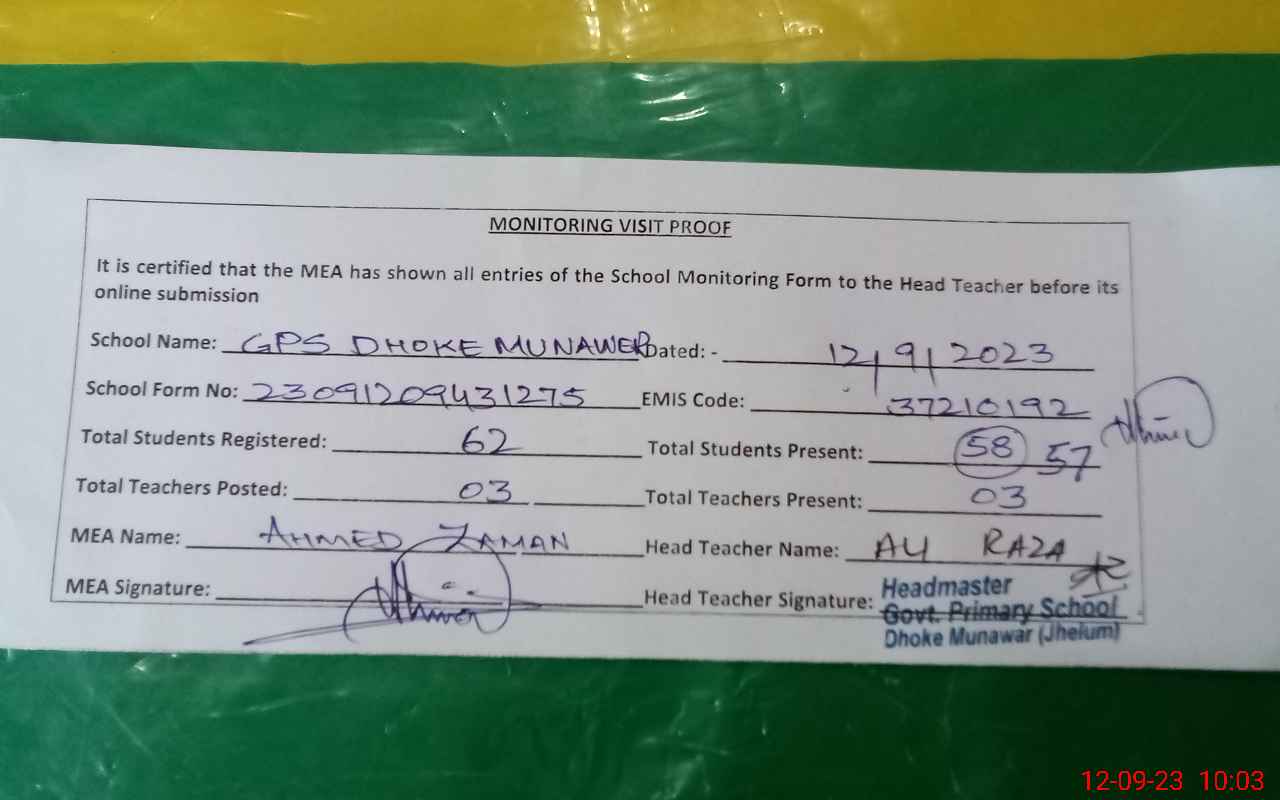 MONITORING VISIT PROOF
It is certified that the MEA has shown all entries of the School Monitoring Form to the Head Teacher before its
online submission
School Name: GPS DHOKE MUNAWER Dated: - 12/9/2023
School Form No: 23091209431275 EMIS Code: 37210192
Total Students Registered: 62 Total Students Present: 58 57
Total Teachers Posted: 03 Total Teachers Present: 03
MEA Name: AHMED ZAMAN Head Teacher Name: ALI RAZA
MEA Signature: Head Teacher Signature:
Headmaster
Govt. Primary School
Dhoke Munawar (Jhelum)
12-09-23 10:03